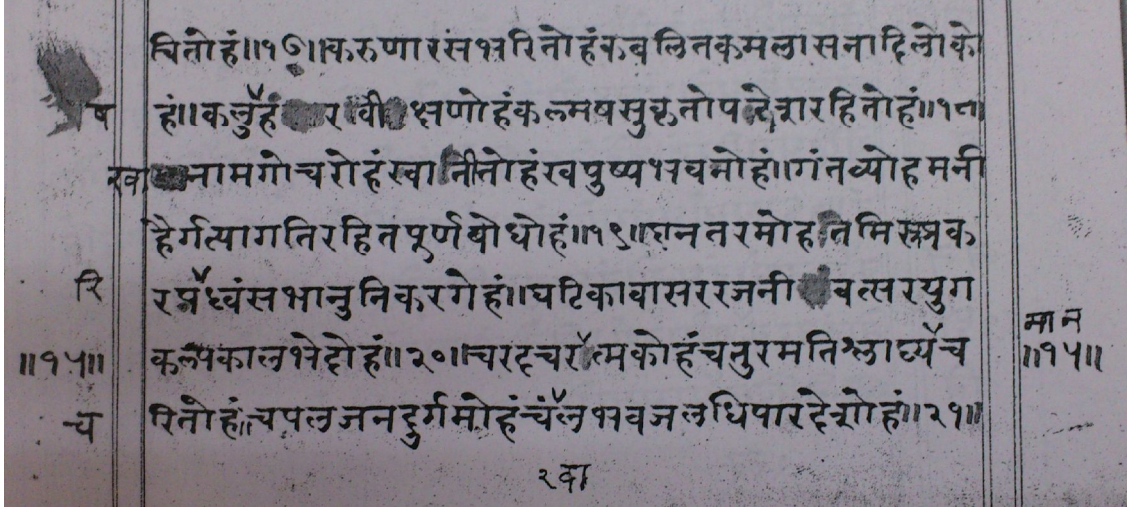 चितोहं॥१७॥करुणारसभरितोहंकबलितकमलासनादिलोको
ष हं॥कलुहं र वी क्षणोहंकल्मषसुकृतोपदेशरहितोहं॥१८
रवा नामगोचरोहंखातीतोहंखपुष्पभवमोहं॥गंतव्योहमनी
हैर्गत्यागतिरहितपूर्णबोधोहं॥१९॥घनतरमोहतिमिरप्रक
रि रप्रध्वंसभानुनिकरगेहं॥घटिकावासररजनी वत्सरयुग
मान
॥१५॥ कल्पकालभेदोहं॥२०॥चरदचरात्मकोहंचतुरमतिश्लाघ्यच ॥१५॥
च रितोहं॥चपलजनदुर्गमोहंचंलभवजलधिपारदेशोहं॥२१॥